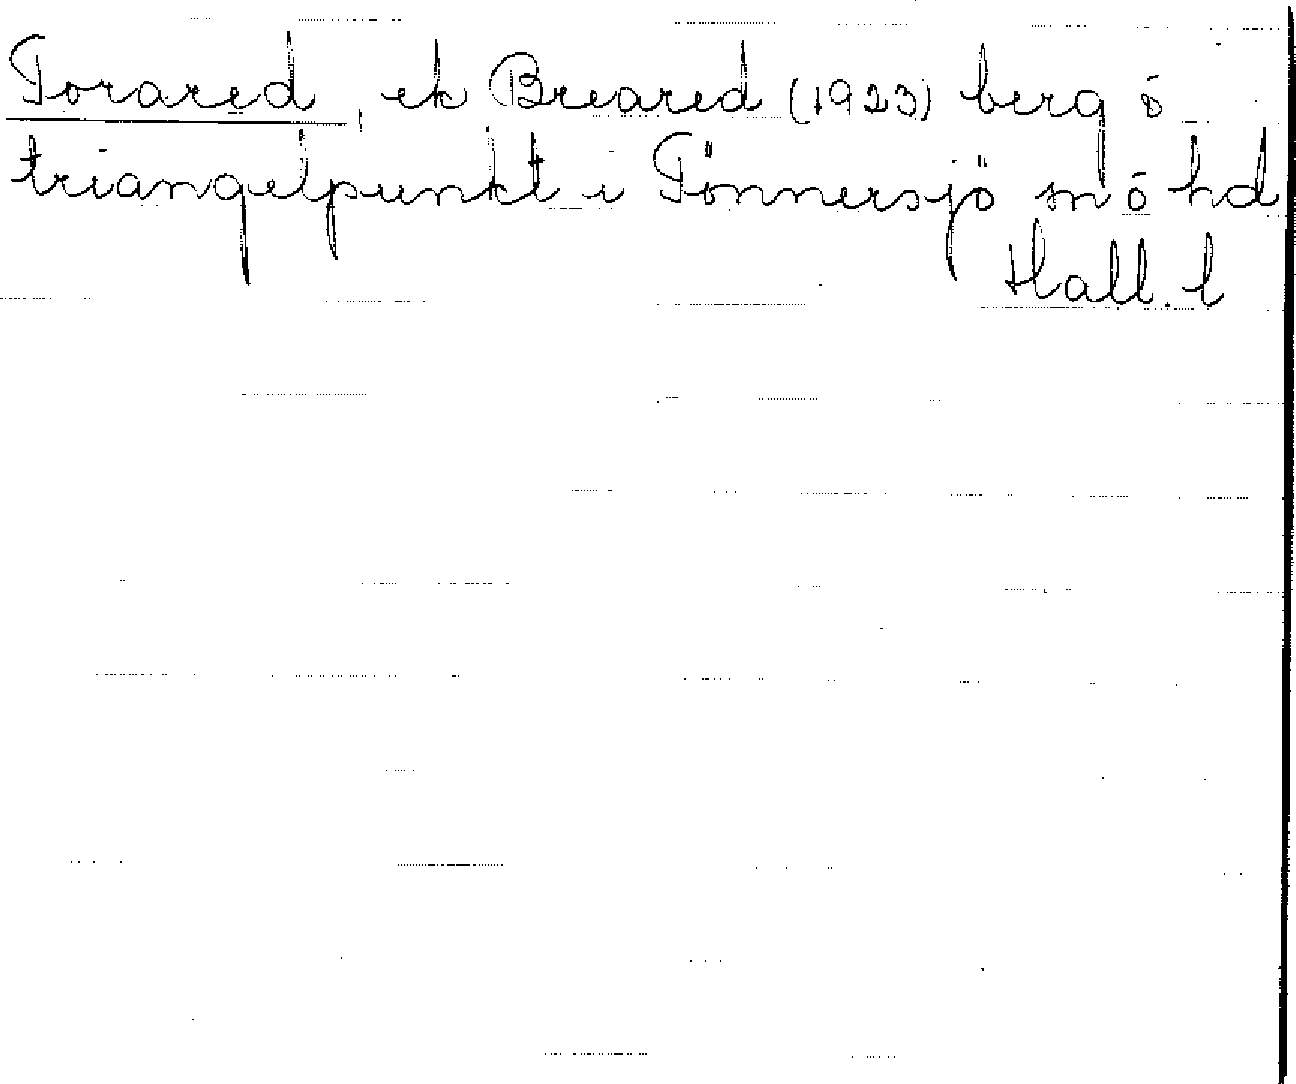 Torared, ek Breared (1923) berg ö
triangelpunkt i Tönnersjö sn ö hd
Hall. l